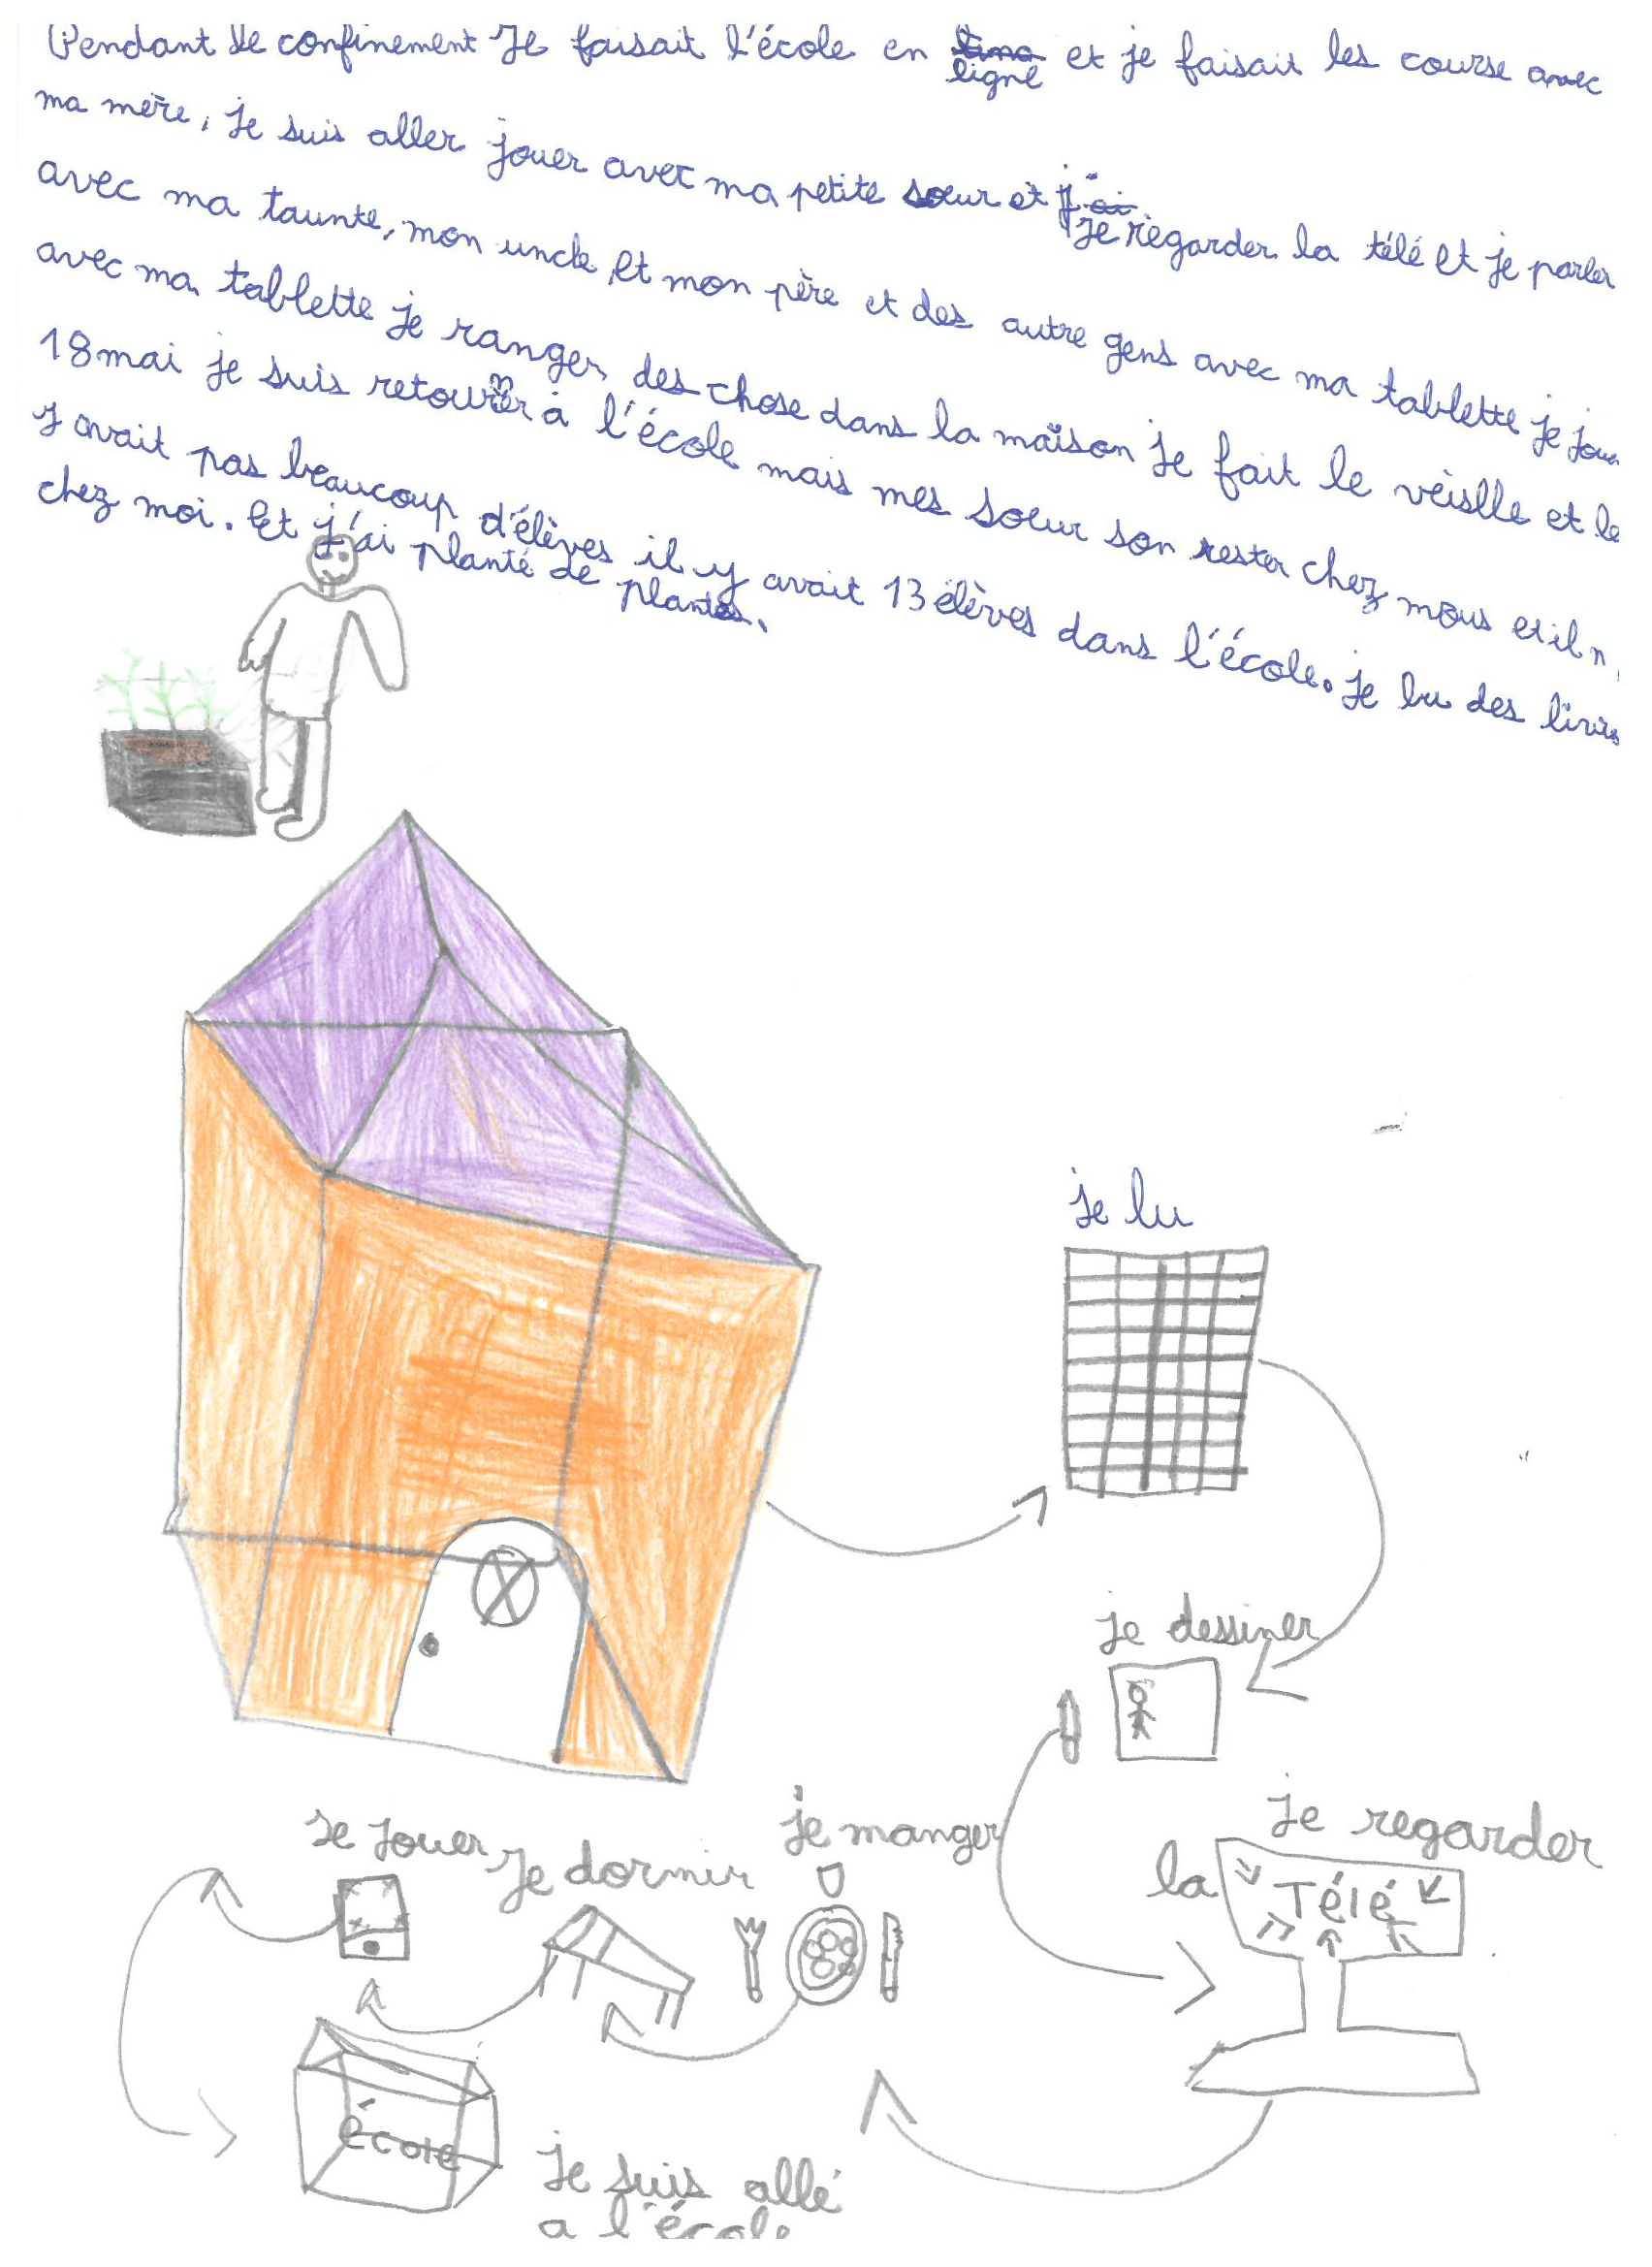 Pendant le confinement Je faisait l'école en ligne et je faisait les course avec
ma mère, je suis aller jouer avec ma petite sœur et j'ai je regarder la télé et je parler
avec ma taunte, mon uncle et mon père et des autre gens avec ma tablette je joue
avec ma tablette je ranger des chose dans la maison je fait le veislle et le
18 mai je suis retourner à l'école mais mes sœur son rester chez mous et il n
y avait pas beaucoup d'élèves il y avait 13 élèves dans l'école. je lu des livres
chez moi. Et j'ai planté de
plantes.
je lu
je dessiner
je regarder
la Télé
je manger
je dormir
Je jouer
école
Je suis allé
a l'école